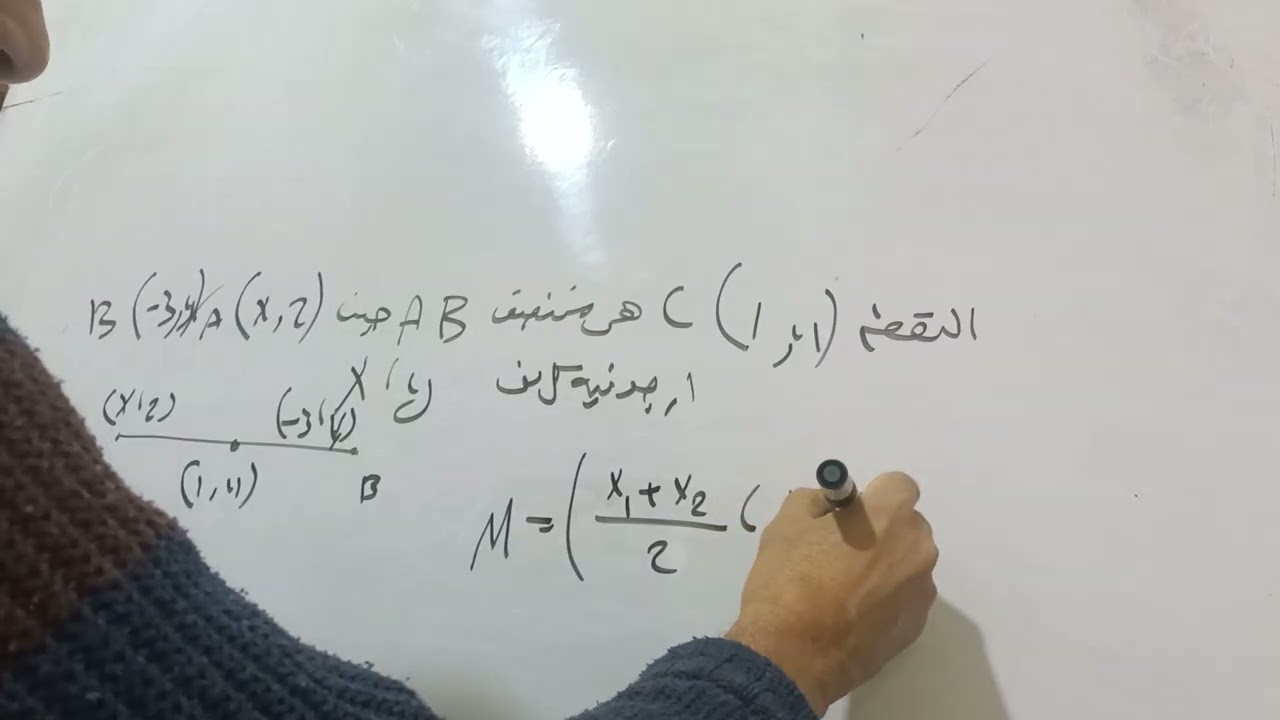 النقطة C (1, 4) هي منتصف AB حيث A (x, 2) B (-3, y)
اوجد قيمة كل من x , y
(x, 2) (-3, y)
(1, 4) B
M = ( x₁ + x₂ / 2 ,